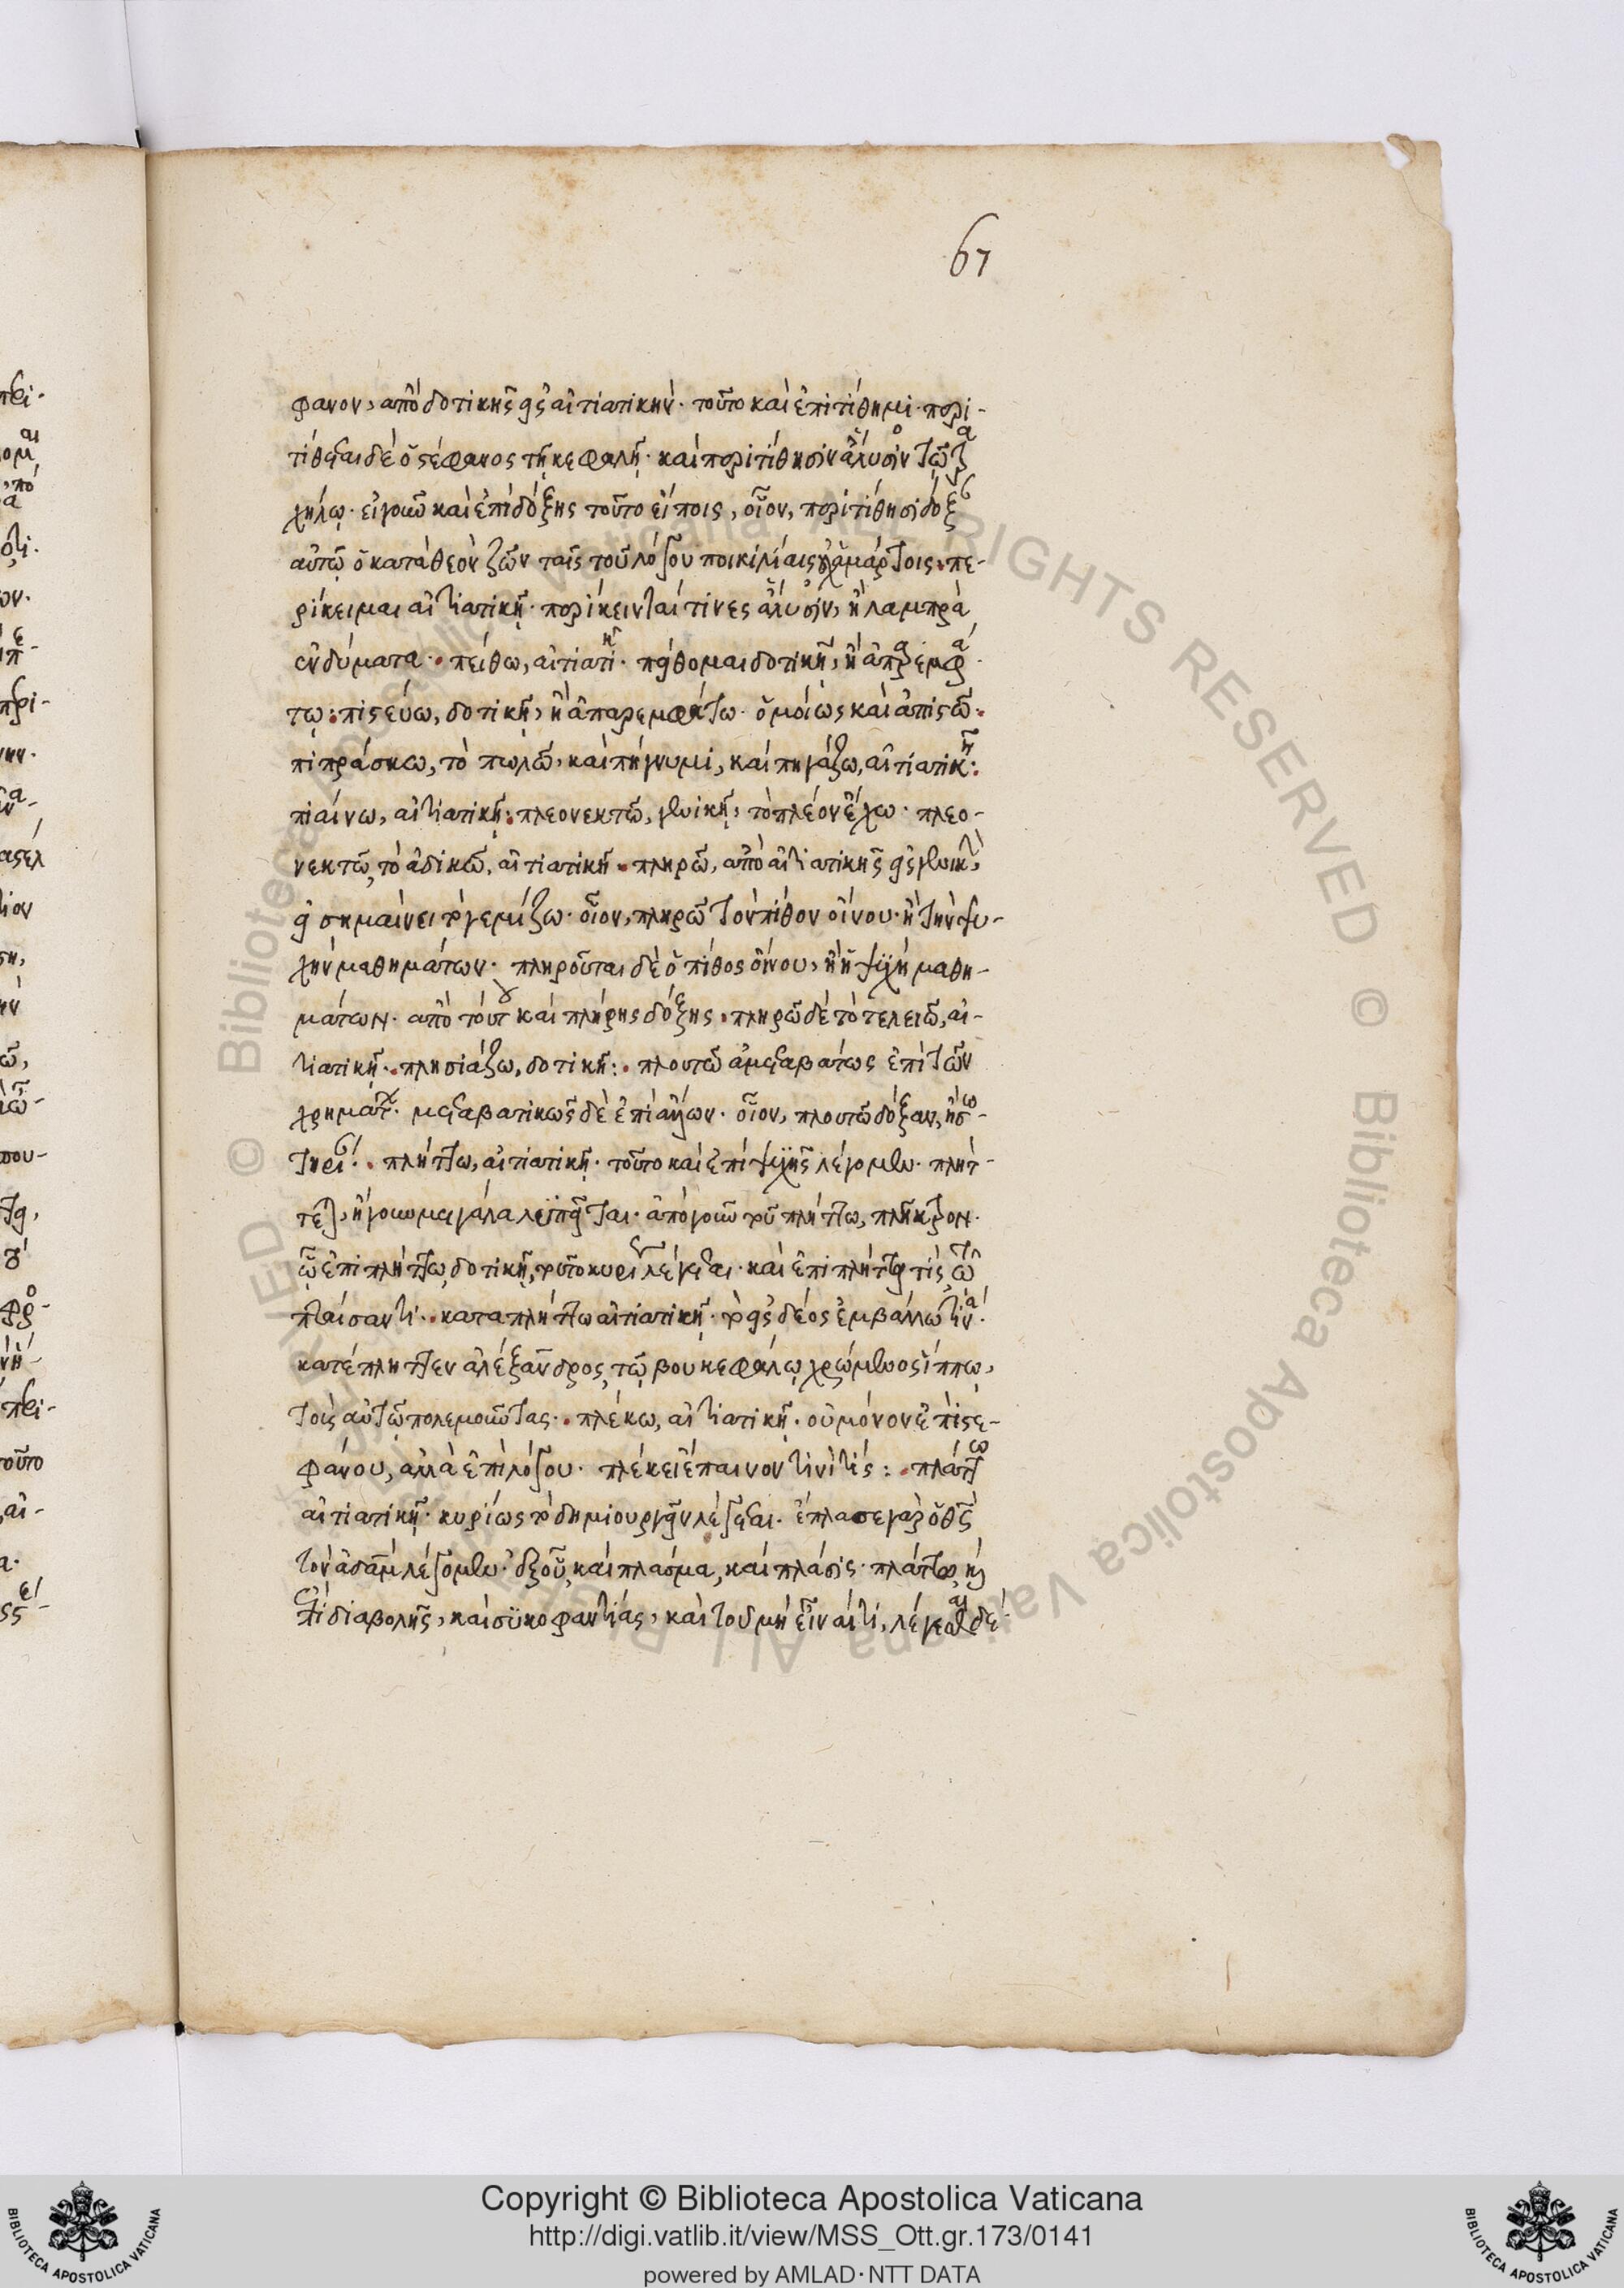 67
φανον, ἀπὸ δοτικῆς εἰς αἰτιατικήν· τοῦτο καὶ ἐπιτίθημι· περι-
τίθεται δὲ ὁ στέφανος τῇ κεφαλῇ· καὶ περιτίθησιν ἅλυσιν τῷ τρα
χήλῳ· εἰγοῦν καὶ ἐπὶ δόξης τοῦτο εἴποις, οἷον, περιτίθησι δόξαν
αὐτῷ ὁ κατὰ θεὸν ζῶν ταῖς τοῦ λόγου ποικιλίαις πε-
ρίκειμαι αἰτιατικῇ· περίκεινταί τινες ἅλυσιν, ἢ λαμπρὰ
ἐνδύματα· πείθω, αἰτιατικῇ· πείθομαι δοτικῇ, ἢ ἀπαρεμφά
τῳ: πιστεύω, δοτικῇ, ἢ ἀπαρεμφάτω· ὁμοίως καὶ ἀπιστῶ.
πιπράσκω, τὸ πωλῶ, καὶ πήγνυμι, καὶ πηγάζω, αἰτιατικῇ:
πιαίνω, αἰτιατικῇ: πλεονεκτῶ, γενικῇ, τὸ πλέον ἔχω· πλεο-
νεκτῶ, τὸ ἀδικῶ, αἰτιατικῇ· πληρῶ, ἀπὸ αἰτιατικῆς εἰς γενικὴν,
εἰ σημαίνει τὸ γεμίζω· οἷον, πληρῶ τὸν πίθον οἴνου· ἢ τὴν ψυ-
χὴν μαθημάτων· πληροῦται δὲ ὁ πίθος οἴνου, ἢ ἡ ψυχὴ μαθη-
μάτων· ἀπὸ τούτου καὶ πλήρης δόξης· πληρῶ δὲ τὸ τελειῶ, αἰ-
τιατικῇ· πλησιάζω, δοτικῇ: πλουτῶ ἀμεταβάτως ἐπὶ τῶν
χρημάτων· μεταβατικῶς δὲ ἐπὶ ἄλλων· οἷον, πλουτῶ δόξαν, ἢ σω-
τηρίαν· πλήττω, αἰτιατικῇ· τοῦτο καὶ ἐπὶ ψυχῆς λέγομεν· πλήτ-
τεται, ἤγουν μεγάλα λυπεῖται· ἀπὸ γοῦν τοῦ πλήττω, πλῆκτρον·
ᾧ ἐπιπλήττω, δοτικῇ, τοῦτο κυρίως λέγεται· καὶ ἐπιπλήττει τίς τῷ
πταίσαντι· καταπλήττω αἰτιατικῇ· τὸ εἰς δέος ἐμβάλλω τινά·
κατέπληττεν ἀλέξανδρος, τῷ βουκεφάλῳ χρώμενος ἵππῳ,
τοὺς αὐτῷ πολεμοῦντας· πλέκω, αἰτιατικῇ· οὐ μόνον ἐπὶ στε-
φάνου, ἀλλὰ ἐπὶ λόγου· πλέκει ἔπαινον τινὶ τίς: πλάττω
αἰτιατικῇ· κυρίως τὸ δημιουργεῖν λέγεται· ἔπλασε γὰρ ὁ θεὸς
τὸν ἀδὰμ λέγομεν· ἐξ οὗ, καὶ πλάσμα, καὶ πλάσις· πλάττω, καὶ
ἐπὶ διαβολῆς, καὶ συκοφαντίας, καὶ τοῦ μὴ εἶναί τι, λέγεται δέ·
Copyright © Biblioteca Apostolica Vaticana
http://digi.vatlib.it/view/MSS_Ott.gr.173/0141
powered by AMLAD·NTT DATA